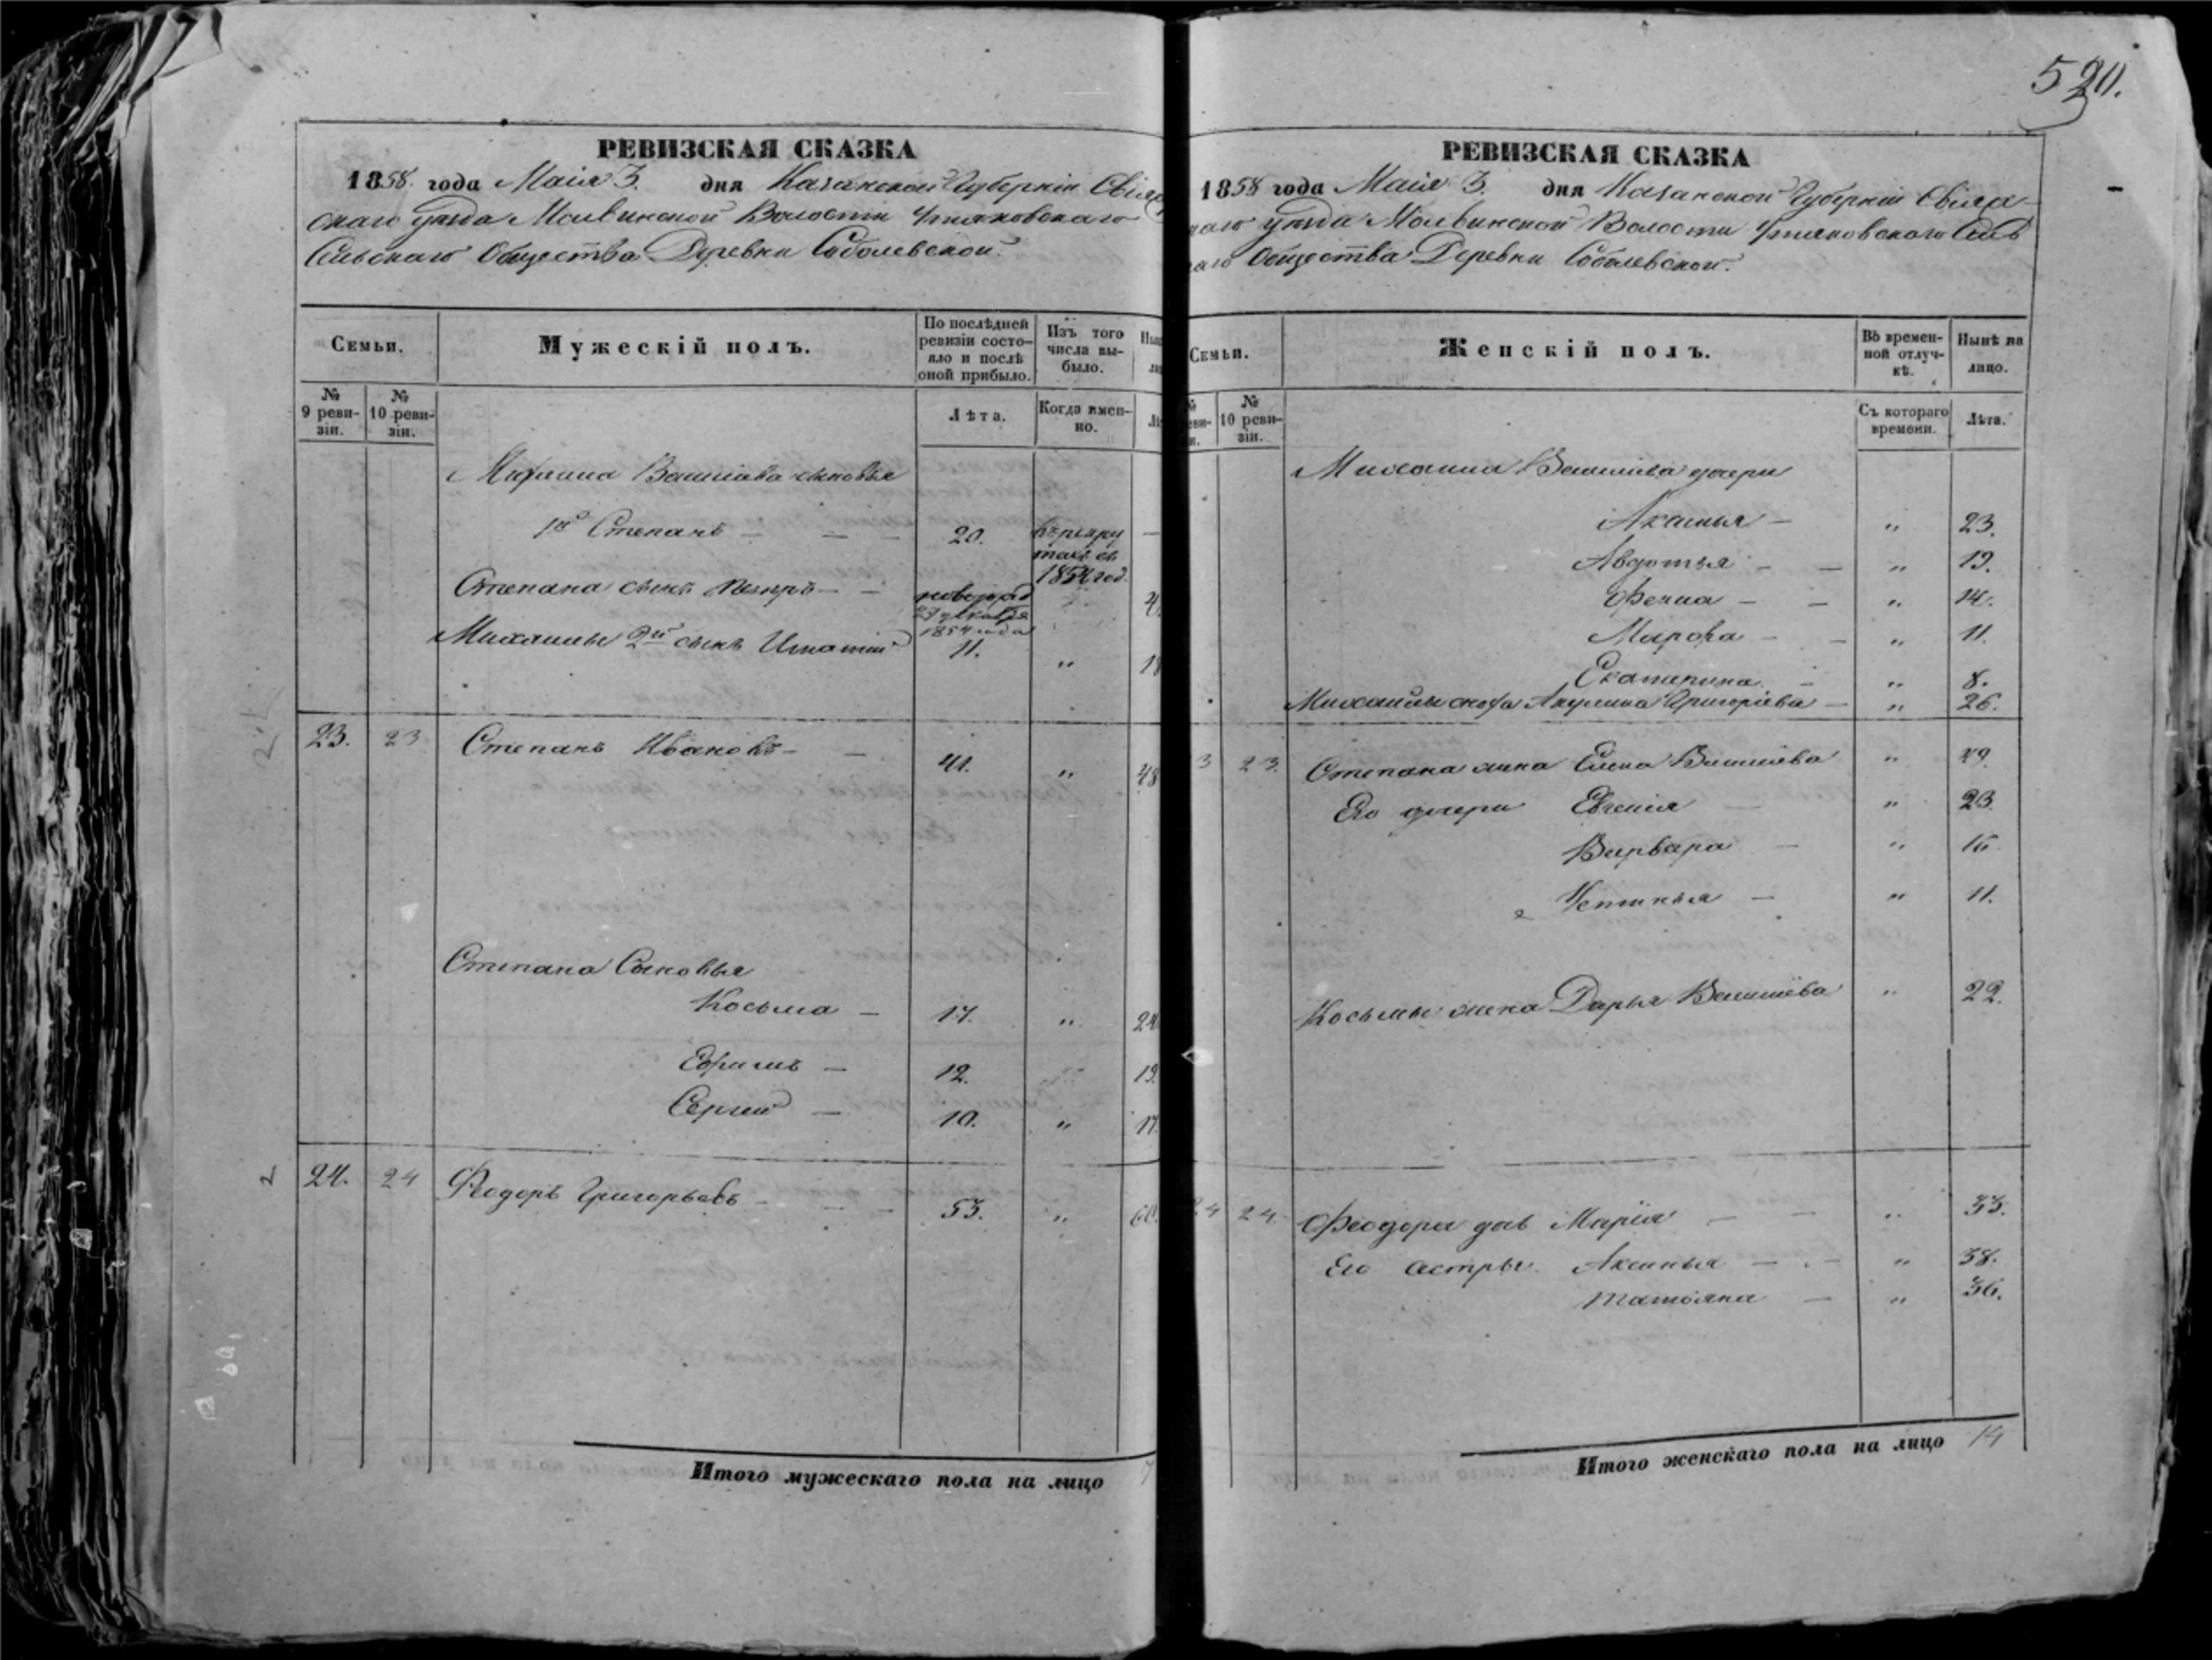 520.
РЕВИЗСКАЯ СКАЗКА
1858. года Маія 3. дня Казанской Губерніи Свіяж
скаго уѣзда Молвинской Волости
Сельскаго Общества Деревни Соболевской.
Семьи.
Мужескій полъ.
По послѣдней ревизіи состо-
яло и послѣ
оной прибыло.
Изъ того
числа вы-
было.
№
9 реви-
зіи.
№
10 реви-
зіи.
Лѣта.
Когда имен-
но.
Михаила сыновья
1й Степанъ — — — 20. —
въ 1854 год.
Степана сынъ Петръ — —
1854 года
Михаилы 2й сынъ Игнатій 11. "
23. 23 Степанъ Ивановъ — — 41. " 48
Степана Сыновья
Косьма — 17. " 24
Ефимъ — 12. 19.
Сергей — 10. " 17
2 24. 24 Феодоръ Григорьевъ — — — 53. " 60.
Итого мужескаго пола на лицо 7
РЕВИЗСКАЯ СКАЗКА
1858 года Маія 3. дня Казанской Губерніи Свіяж
скаго уѣзда Молвинской Волости
Общества Деревни Соболевской.
Семьи.
Женскій полъ.
Во времен-
ной отлуч-
кѣ.
Нынѣ на
лицо.
№
10 реви-
зіи.
Съ котораго
времени.
Лѣта.
Михаила дочери
— " 23.
Авдотья — — " 19.
— — " 14.
Марфа — — " 11.
Екатерина — " 8.
Михайлы сноха Акулина Григорьева — " 26.
3 23. Степана жена Елена " 49.
Его дочери Евгенія — " 23.
Варвара — " 16.
Устинья — " 11.
Косьмы жена Дарья " 22.
24 24. Феодора дочь Марія — — " 33.
Его сестры Аксинья — — " 38.
Татьяна — " 36.
Итого женскаго пола на лицо 14